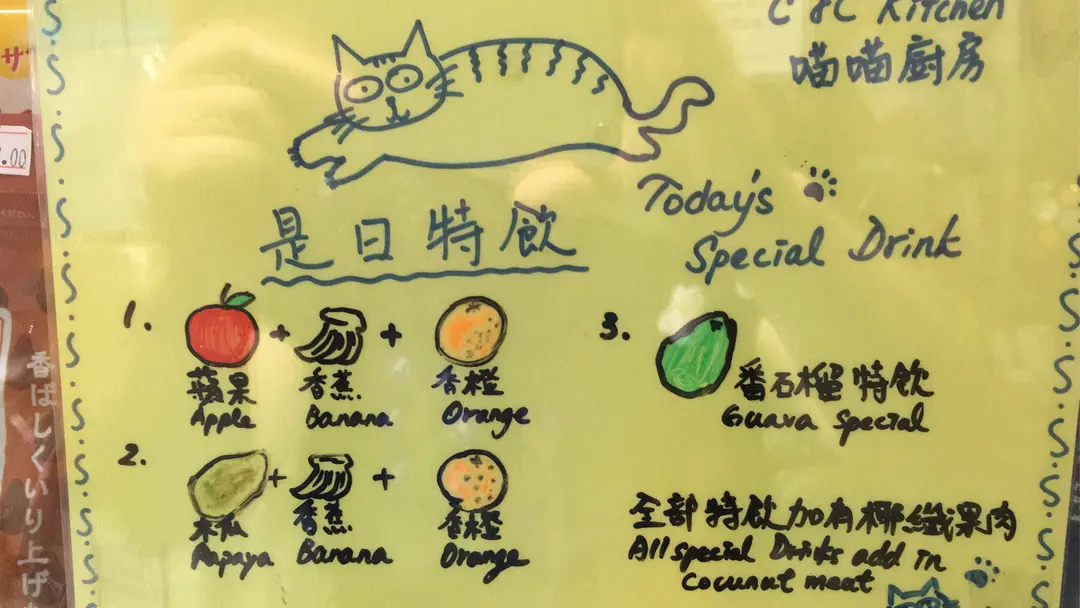 C & C Kitchen
喵喵廚房
Today's
Special Drink
是日特飲
1.
+
+
蘋果
香蕉
香橙
Apple
Banana
Orange
2.
+
+
木瓜
香蕉
香橙
Papaya
Banana
Orange
3.
番石榴特飲
Guava Special
全部特飲加有椰纖果肉
All special Drinks add in
Cocunut meat
サ
.00
ください。
香ばしくいり上げ